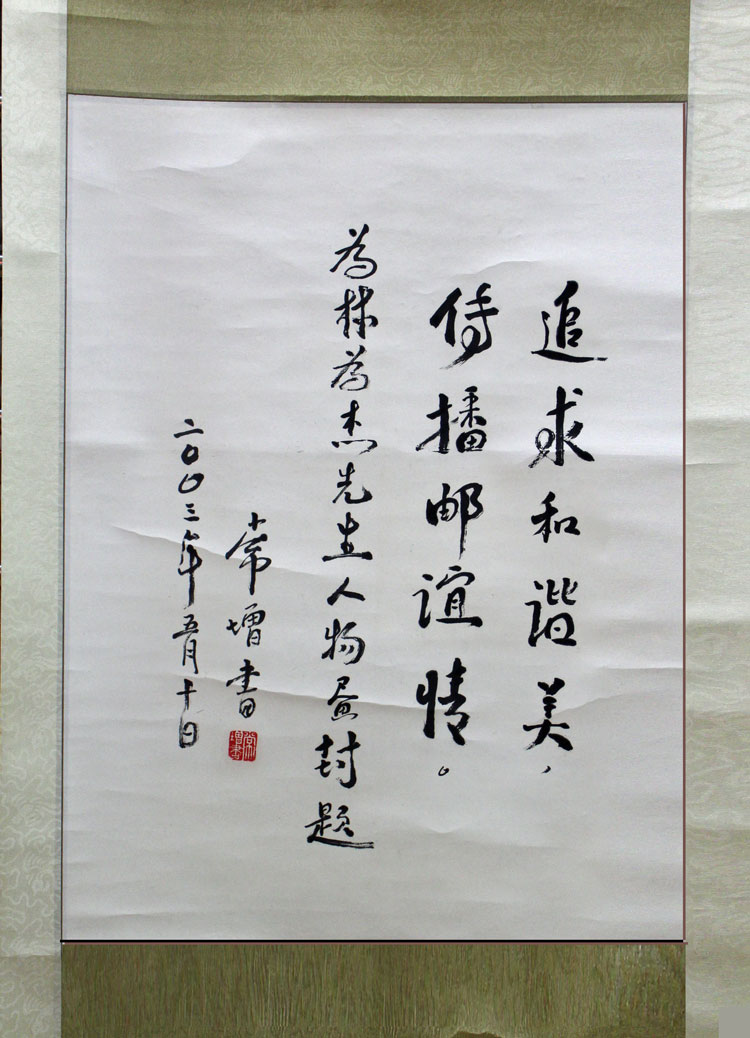 追求和谐美，
传播邮谊情。
为林为杰先生人物画封题
常增书
二〇〇三年五月十日
常增書